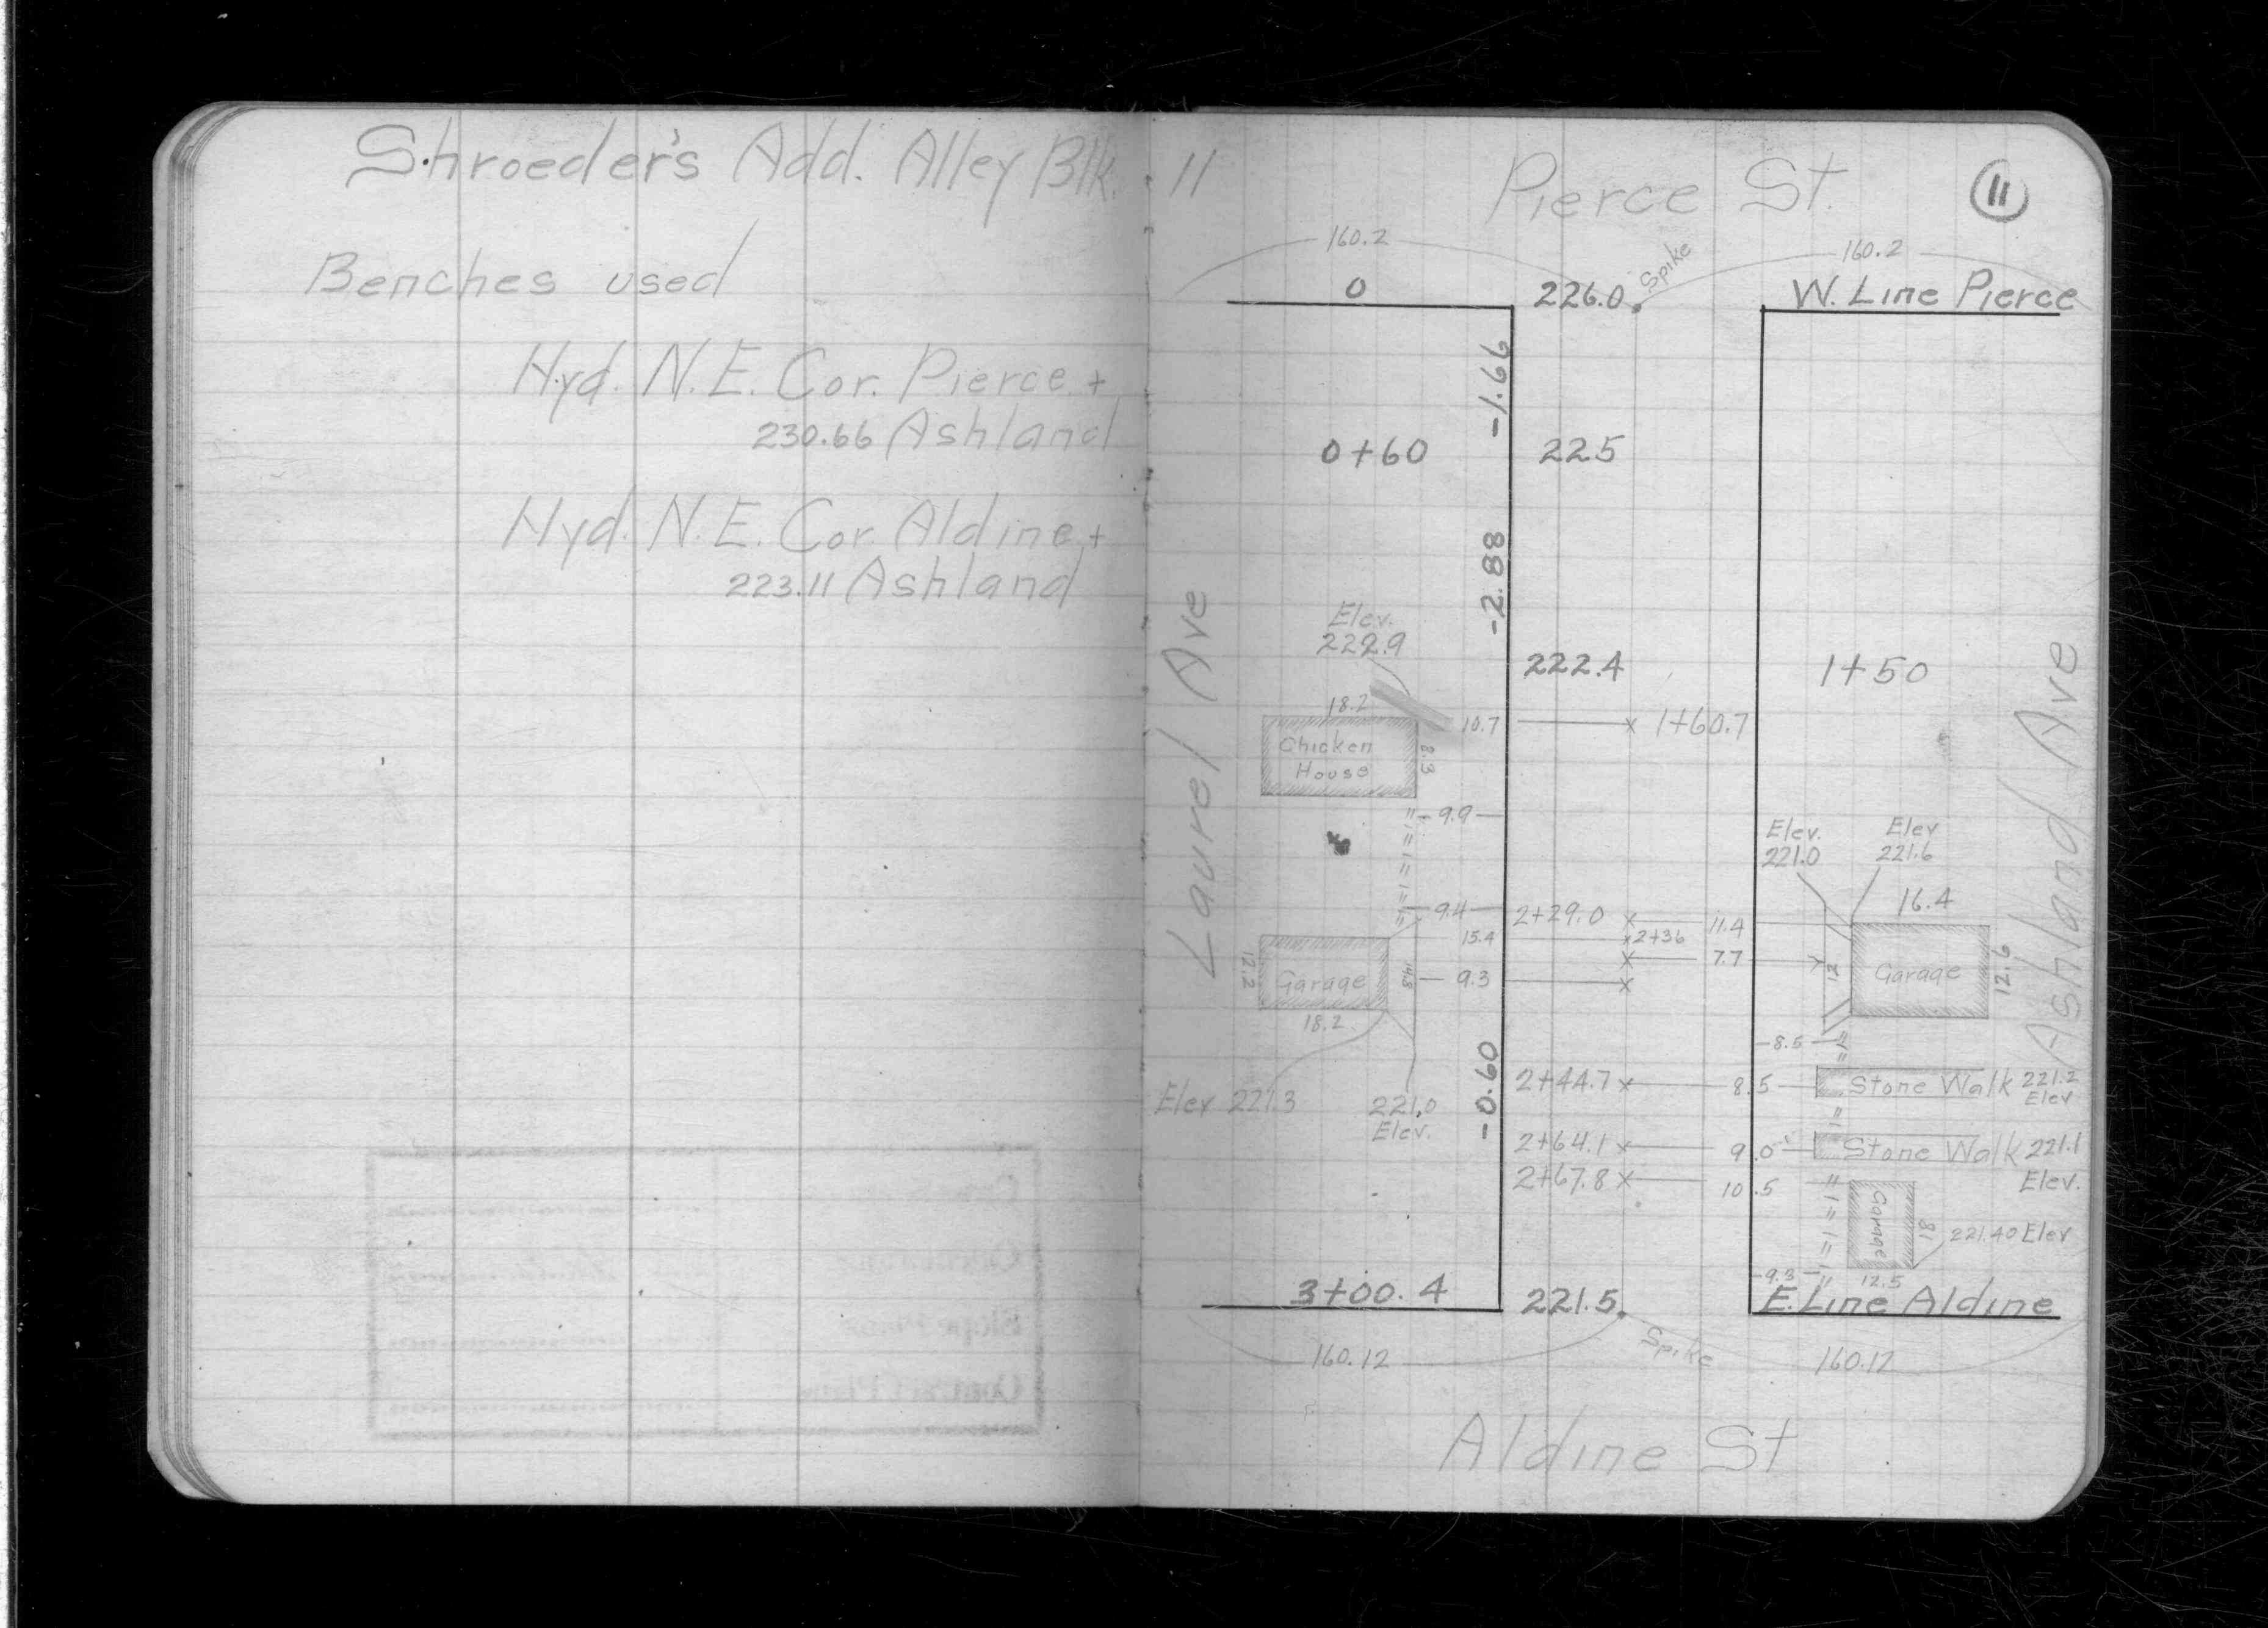 Shroeder's Add. Alley Blk. 11
Benches used
Hyd. N.E. Cor. Pierce +
230.66 Ashland
Hyd. N.E. Cor. Aldine +
223.11 Ashland
Pierce St.
11
160.2
Spike
160.2
0
226.0
W. Line Pierce
-1.66
0+60
225
-2.88
Laurel Ave
Ashland Ave
Elev.
222.9
222.4
1+50
18.2
10.7
1+60.7
Chicken
House
8.3
9.9
Elev.
221.0
Elev
221.6
16.4
9.4
2+29.0
11.4
15.4
2+36
7.7
12.2
Garage
14.8
9.3
12
Garage
12.6
18.2
8.5
-0.60
Elev 221.3
221.0
Elev.
2+44.7
8.5
Stone Walk
221.2
Elev
2+64.1
9.0
Stone Walk
221.1
Elev.
2+67.8
10.5
Garage
18
221.40 Elev
9.3
12.5
3+00.4
221.5
E. Line Aldine
160.12
Spike
160.12
Aldine St